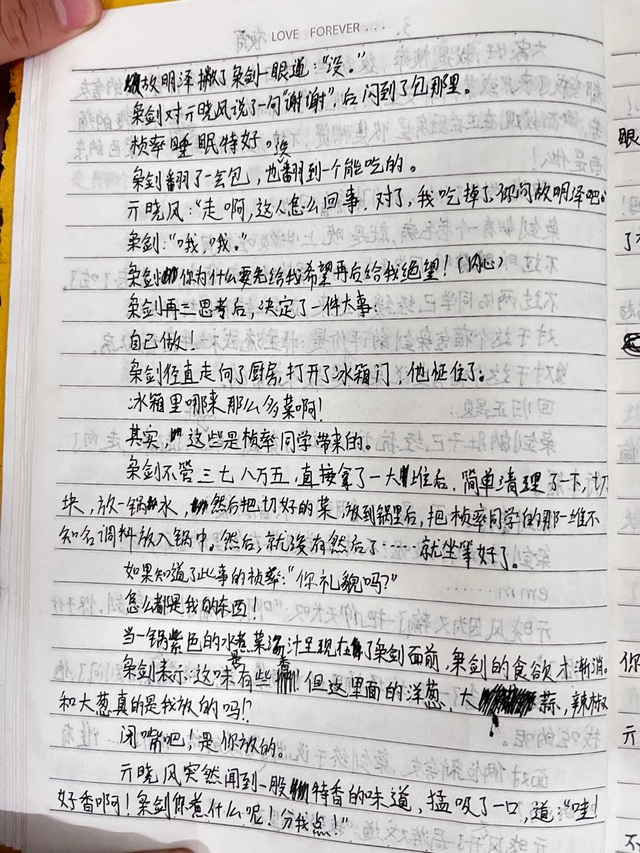 LOVE FOREVER....
故明泽撇了枭剑一眼道:"没。"
枭剑对亓晓风说了一句"谢谢",后闪到了包那里。
桢率睡眠特好。
枭剑翻了一会包,也没翻到一个能吃的。
亓晓风:"走啊,这人怎么回事,对了,我吃掉了,你问故明泽吧。
枭剑:"哦,哦。"
枭剑你为什么要先给我希望再后给我绝望!(内心)
枭剑再三思考后,决定了一件大事:
自己做!
枭剑径直走向了厨房,打开了冰箱门,他怔住了。
冰箱里哪来那么多菜啊!
其实,这些是桢率同学带来的。
枭剑不管三七八万五,直接拿了一大堆后,简单清理了一下,切
块,放一锅水,然后把切好的菜,放到锅里后,把桢率同学的那一堆不
知名调料放入锅中。然后,就没有然后了……就坐等好了。
如果知道了此事的桢率:"你礼貌吗?"
怎么都是我的东西!
当一锅紫色的水煮菜汤汁呈现在了枭剑面前,枭剑的食欲才渐消。
枭剑表示:这味有些香!但这里面的洋葱,大蒜,辣椒
和大葱真的是我放的吗!?
闭嘴吧!是你放的。
亓晓风突然闻到一股特香的味道,猛吸了一口,道:"哇!
好香啊!枭剑你煮什么呢!分我点!"